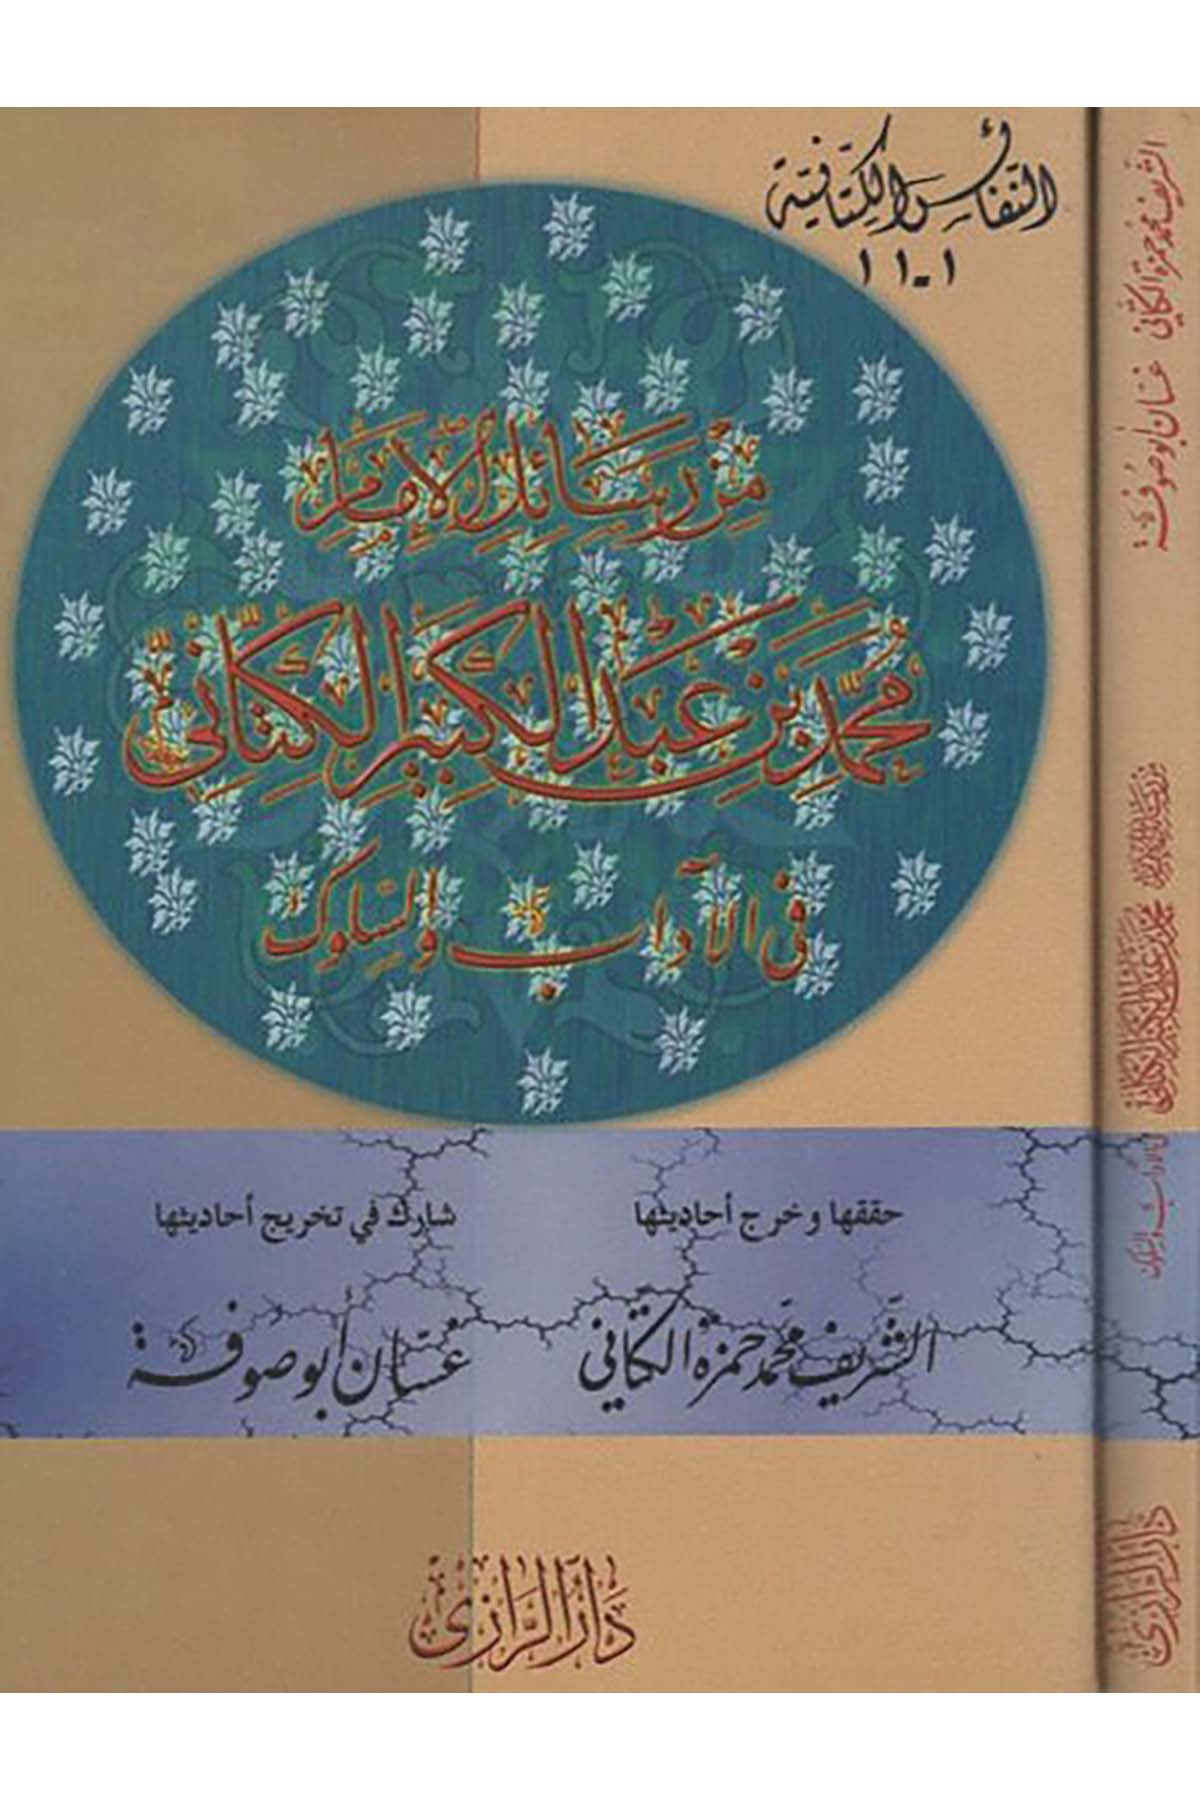 النفائس الكتانية
١ - ١١
من رسائل الإمام
محمد بن عبد الكبير الكتاني
في الآداب والسلوك
حققها وخرج أحاديثها
الشريف محمد حمزة الكتاني
شارك في تخريج أحاديثها
غسان أبو صوفة
دار الرازي
الشريف محمد حمزة الكتاني غسان أبو صوفة
من رسائل الإمام محمد بن عبد الكبير الكتاني في الآداب والسلوك
دار الرازي